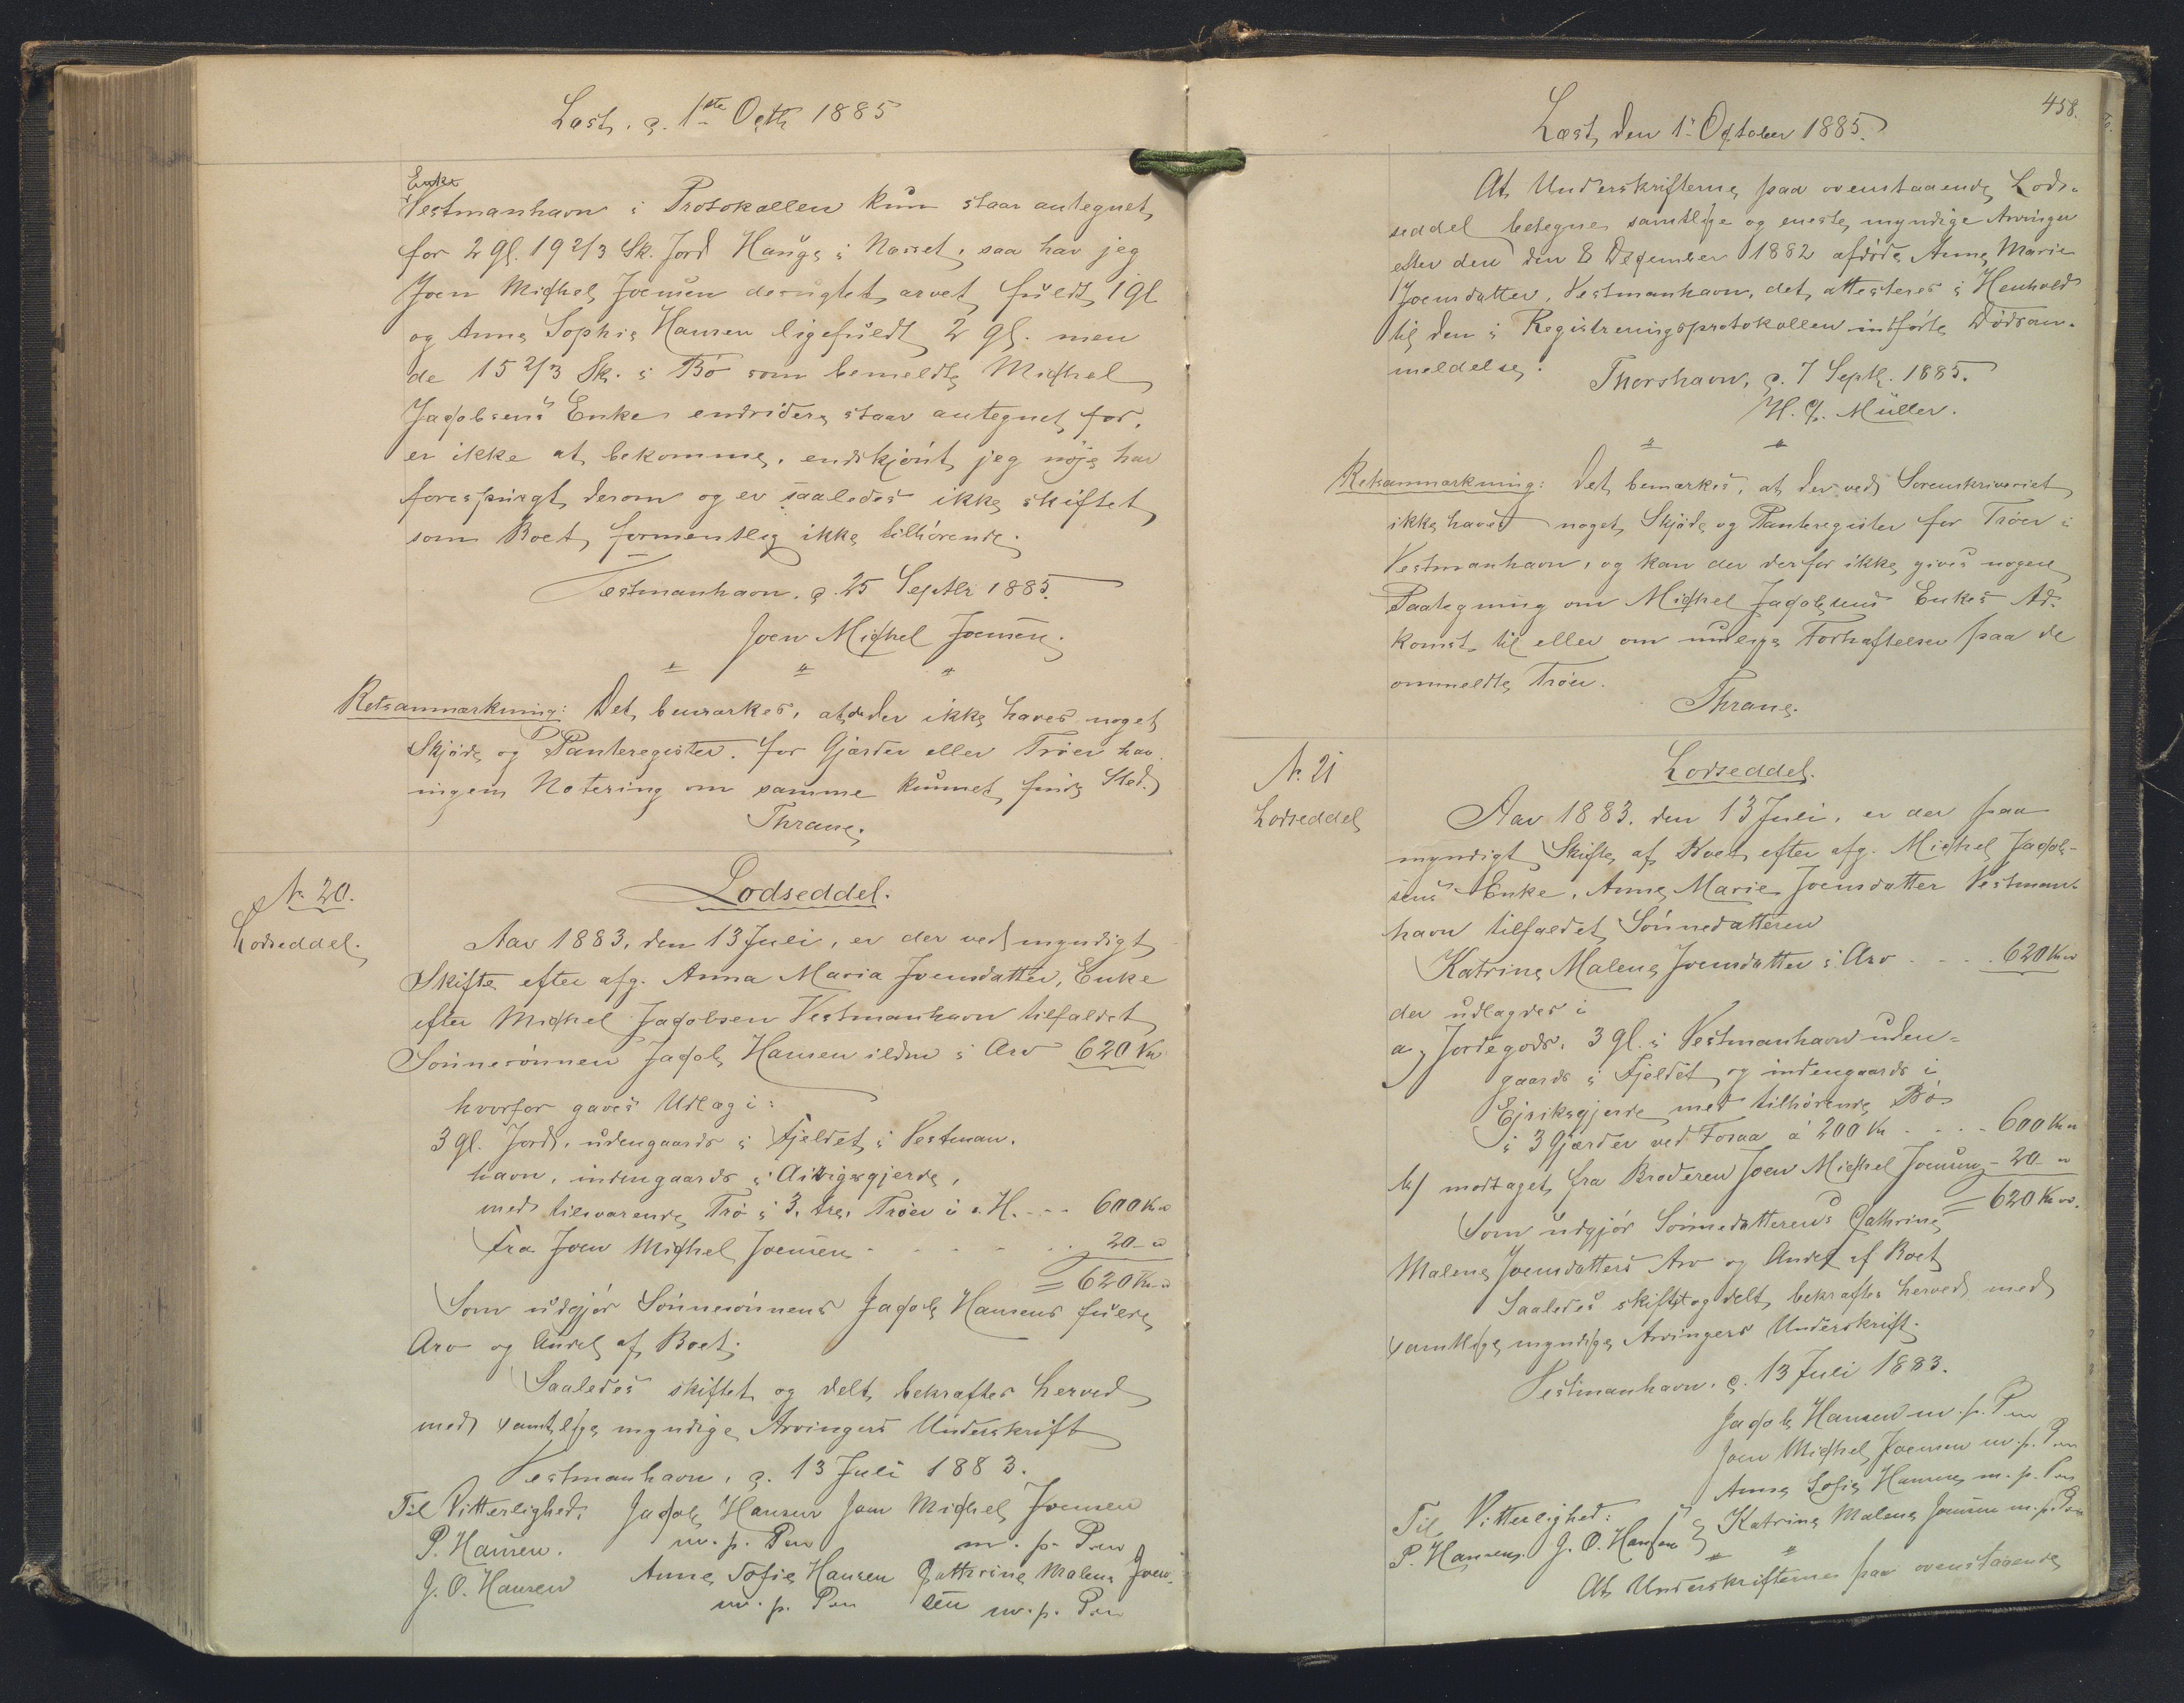 Læst, d. 1ste Octb 1885
Enke
Vestmanhavn i Protokollen kun staar antegnet
for 2 gl. 19 2/3 Sk. Jord Hauge i Næsset, saa har jeg
Joen Michel Joensen desugtet arvet fuldt 1 gl
og Anne Sophie Hansen ligefuldt 2 gl. men
de 15 2/3 Sk. i Bö som bemeldte Michel
Jacobsens Enke endvidere staar antegnet for,
er ikke at bekomme, endskjönt jeg nöje har
forespurgt derom og er saaledes ikke skiftet
som Boet formentlig ikke tilhörende.
Vestmanhavn, d. 25 Septbr 1885.
Joen Michel Joensen.
Retsanmærkning: Det bemærkes, at da der ikke haves noget
Skjöde og Panteregister for Gjærder eller Tröer har
ingen Notering om samme kunnet finde Sted.
Thrane.
N. 20.
Lodseddel.
Lodseddel.
Aar 1883, den 13 Juli, er der ved myndigt
Skifte efter afg. Anna Maria Joensdatter, Enke
efter Michel Jacobsen Vestmanhavn tilfaldet
Sönnesönnen Jacob Hansen i Arv 620 Kr
hvorfor gaves Udlæg i:
3 gl. Jord, udengaards i Fjeldet i Vestman-
havn, indengaards i Airigsgjerde,
med tilsvarende Trö i 3, tre, Tröer i H. - - - 600 Kr "
Fra Joen Michel Joensen - - - - - 20 - "
= 620 Kr "
Som udgjör Sönnesönnens Jacob Hansens fulde
Arv og Andel af Boet.
Saaledes skiftet og delt bekræftes herved
med samtlige myndige Arvingers Underskrift
Vestmanhavn, d. 13 Juli 1883.
Til Vitterlighed: Jacob Hansen Joen Michel Joensen
P. Hansen. m. p. Pen m. p. Pen
J. O. Hansen Anne Sofie Hansen Cathrine Malene Joen-
m. p. Pen sen m. p. Pen
458.
Læst, den 1. October 1885.
At Underskrifterne paa ovenstaaende Lods-
seddel betegne samtlige og eneste myndige Arvinger
efter den den 8 December 1882 afdöde Anne Marie
Joensdatter, Vestmanhavn, det attesteres i Henhold
til den i Registreringsprotokollen indförte Dödsan-
meldelse.
Thorshavn, d. 7 Septb. 1885.
H. C. Müller.
Retsanmærkning: Det bemærkes, at der ved Sorenskriveriet
ikke haves noget Skjöde og Panteregister for Tröer i
Vestmanhavn, og kan der derfor ikke gives nogen
Paategning om Michel Jacobsens Enkes Ad-
komst til eller om mulige Forhæftelser paa de
ommeldte Tröer.
Thrane.
N. 21
Lodseddel
Lodseddel.
Aar 1883, den 13 Juli, er der paa
myndigt Skifte af Boet efter afg. Michel Jacob-
sens Enke, Anne Marie Joensdatter Vestman-
havn tilfaldet Sönnedatteren
Katrine Malene Joensdatter i Arv - - - . 620 Kr "
der udlagdes i
a, Jordegods. 3 gl. i Vestmanhavn uden-
gaards i Fjeldet og indengaards i
Ejriksgjerde med tilhörende Bö
i 3 Gjærder ved Fosaa á 200 Kr - - - - 600 Kr "
b/ modtaget fra Broderen Joen Michel Joensen - 20 - "
= 620 Kr "
Som udgjör Sönnedatterens Cathrine
Malene Joensdatters Arv og Andel af Boet
Saaledes skiftet og delt, bekræftes herved med
samtlige myndige Arvingers Underskrift.
Vestmanhavn, d. 13 Juli 1883.
Jacob Hansen m. p. Pen
Joen Michel Joensen m. p. Pen
Anne Sofie Hansen m. p. Pen
Til Vitterlighed: Katrine Malene Joensen m. p. Pen
P. Hansen. J. O. Hansen
At Underskrifterne paa ovenstaaende